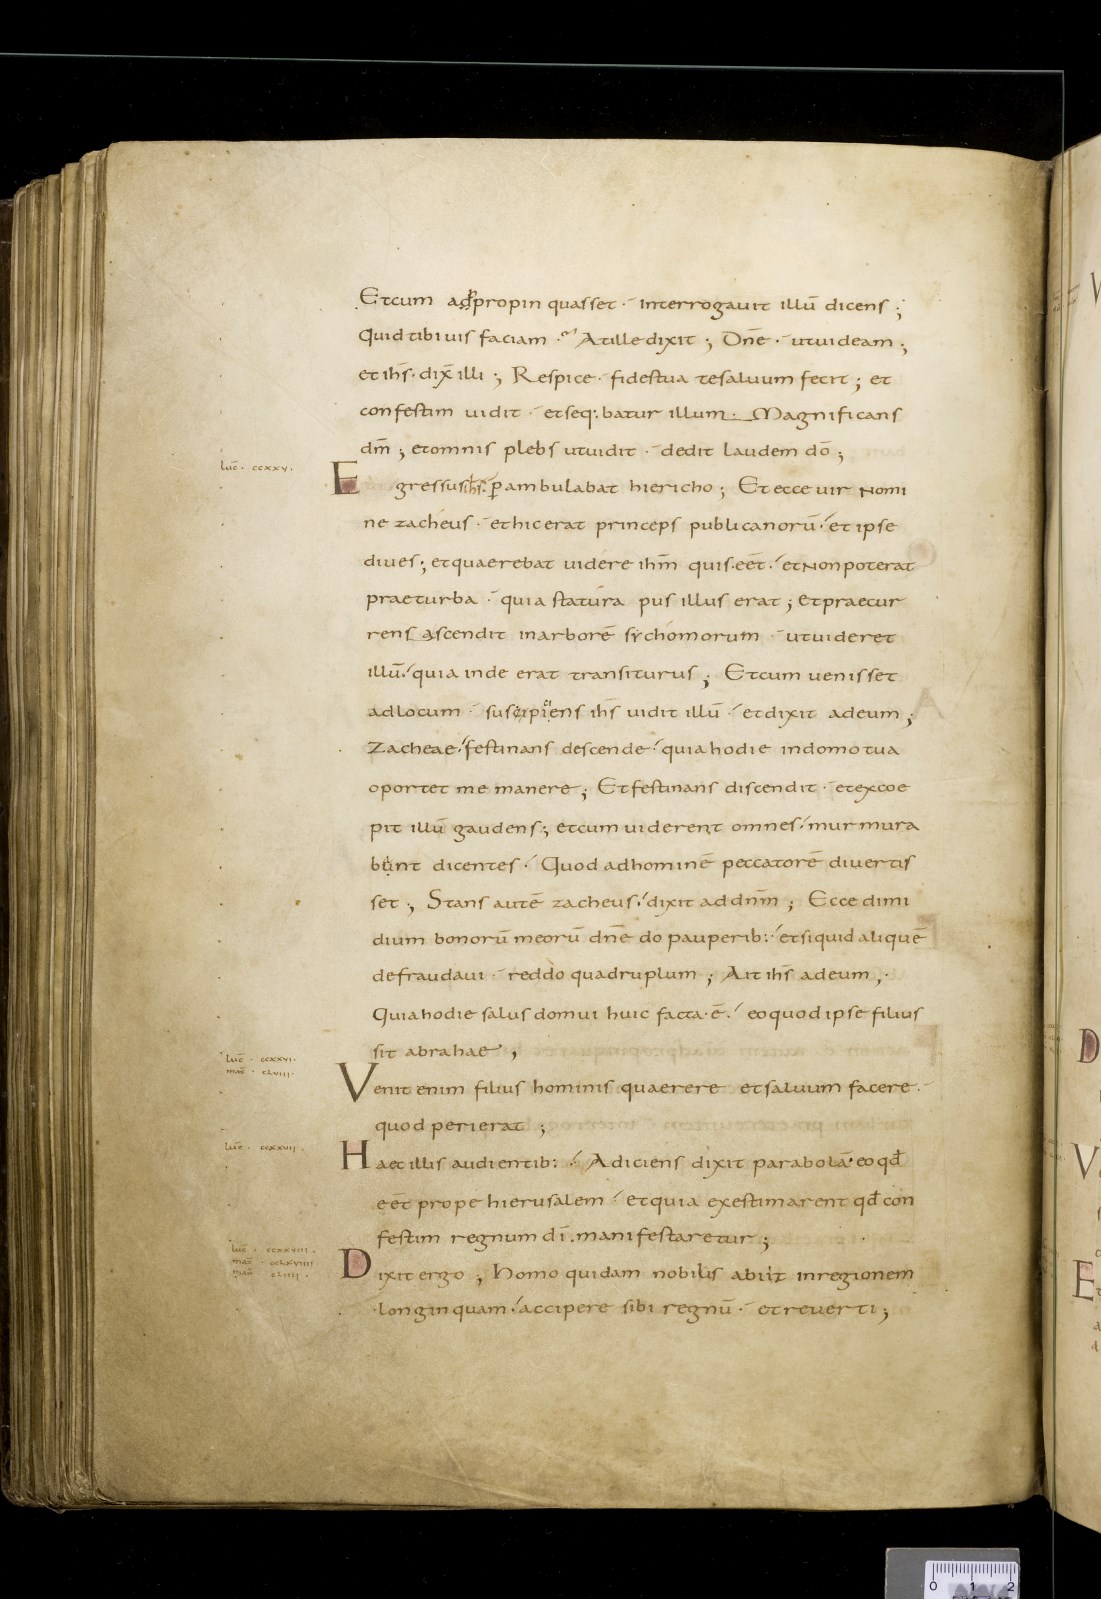 Etcum adpropinquasset · interrogauit illū dicens ;
Quid tibi uis faciam · At ille dixit ; Dn̄e · ut uideam ;
et ih̄s · dix̄ illi ; Respice · fides tua te saluum fecit ; et
confestim uidit · et seq: batur illum · Magnificans
dm̄ ; et omnis plebs ut uidit · dedit laudem dō ;
luc̄ · ccxxv ·
Egressus ih̄s · p̱ambulabat hiericho ; Et ecce uir nomi
ne zacheus · et hic erat princeps publicanorū · et ipse
diues ; et quaerebat uidere ihm̄ quis · eēt · et non poterat
prae turba · quia statura pusillus erat ; et praecur
rens ascendit in arborē sychomorum · ut uideret
illū · quia inde erat transiturus ; Et cum uenisset
ad locum · ih̄s uidit illū · et dixit ad eum ;
Zacheae · festinans descende · quia hodie in domo tua
oportet me manere ; Et festinans discendit · et excoe
pit illū gaudens ; et cum uiderent omnes · murmura
bunt dicentes · Quod ad hominē peccatorē diuertis
set ; Stans autē zacheus · dixit ad dnm̄ ; Ecce dimi
dium bonorū meorū dn̄e do pauperib: · et si quid aliquē
defraudaui · reddo quadruplum ; Ait ih̄s ad eum ;
Quia hodie salus domui huic facta · ē · eo quod ipse filius
sit abrahae ;
luc̄ · ccxxvi ·
mat̄ · clviii ·
Venit enim filius hominis quaerere et saluum facere ·
quod perierat ;
luc̄ · ccxxvii ·
Haec illis audientib: · Adiciens dixit parabolā · eo qđ
eēt prope hierusalem · et quia exestimarent qđ con
festim regnum dī · manifestaretur ;
luc̄ · ccxxviii ·
Dixit ergo ; Homo quidam nobilis abiit in regionem
longinquam · accipere sibi regnū · et reuerti ;
0 1 2